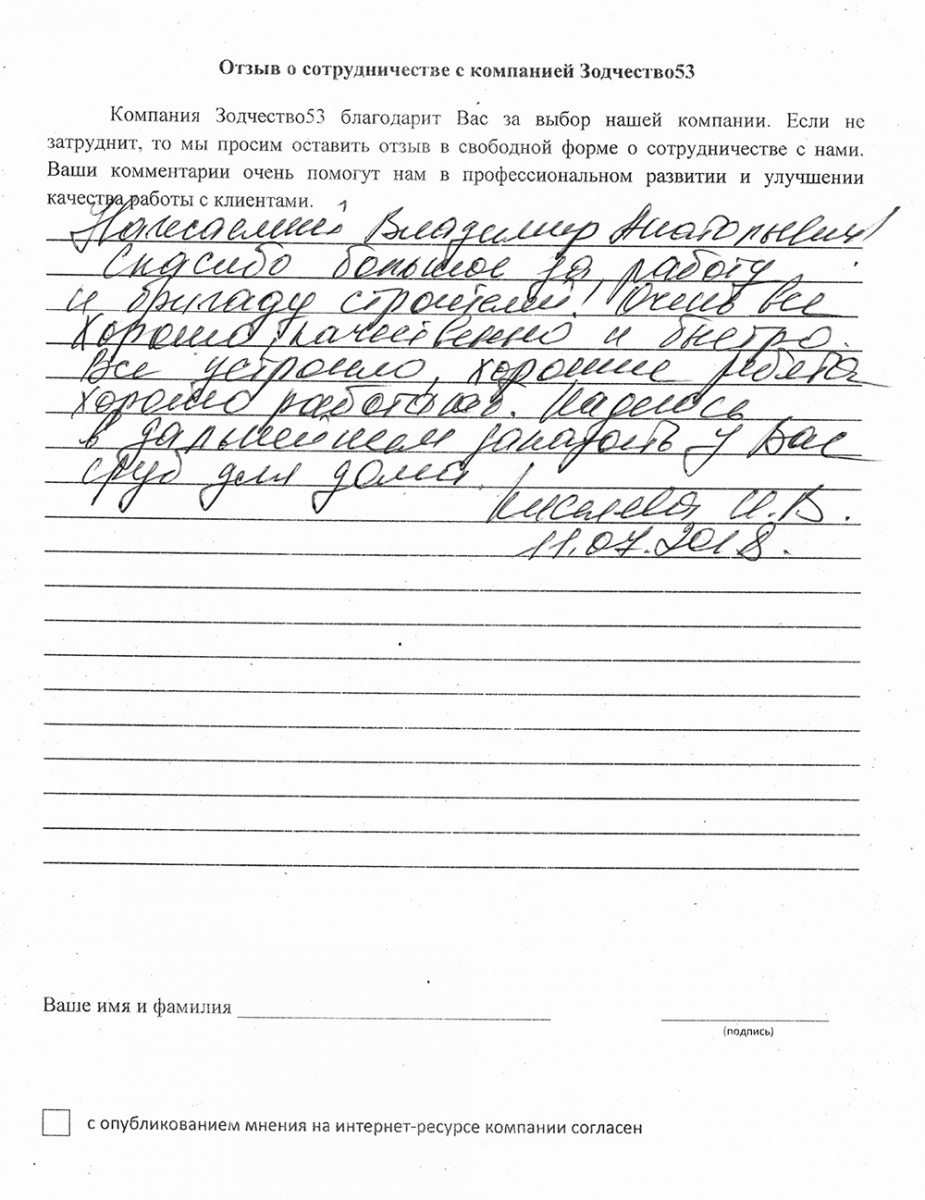 Отзыв о сотрудничестве с компанией Зодчество53
Компания Зодчество53 благодарит Вас за выбор нашей компании. Если не
затруднит, то мы просим оставить отзыв в свободной форме о сотрудничестве с нами.
Ваши комментарии очень помогут нам в профессиональном развитии и улучшении
качества работы с клиентами.
Владимир Анатольевич!
Спасибо большое за работу
и бригаду строителей! Очень все
хорошо, качественно и быстро.
Все устроило, хорошие ребята
хорошо работают. Надеюсь
в дальнейшем заказать у Вас
сруб для дома.
Киселева И.В.
11.07.2018.
Ваше имя и фамилия
(подпись)
с опубликованием мнения на интернет-ресурсе компании согласен